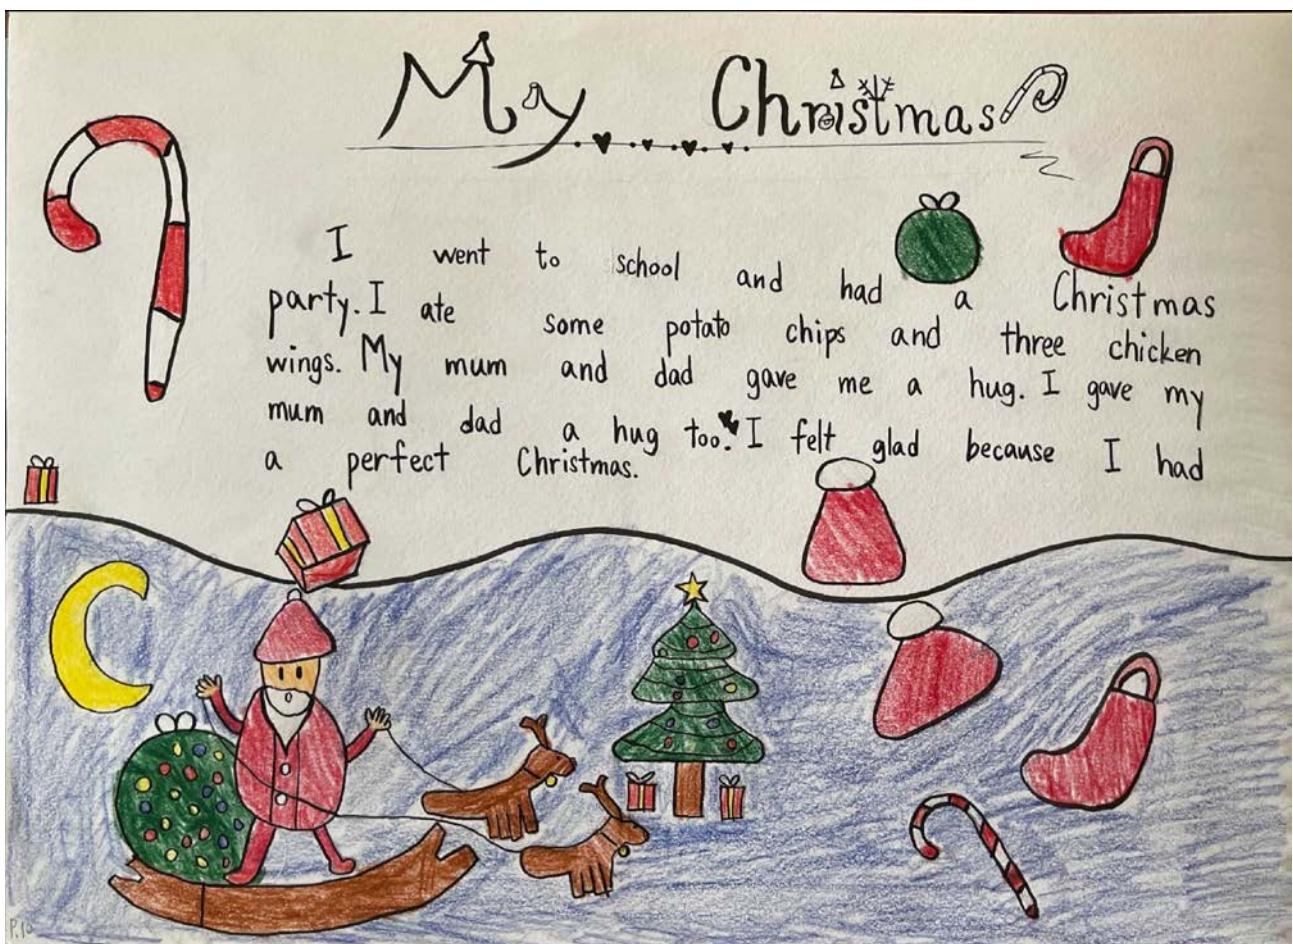 My Christmas
I went to school and had a Christmas
party. I ate some potato chips and three chicken
wings. My mum and dad gave me a hug. I gave my
mum and dad a hug too. I felt glad because I had
a perfect Christmas.